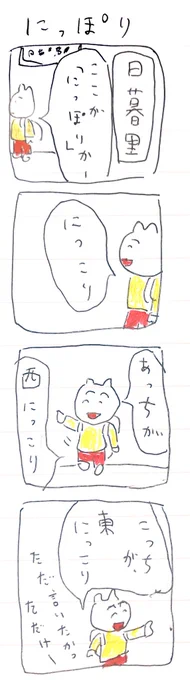 にっぽり
日暮里
ここが
「にっぽり」
かー
にっこり
あっちが
西にっこり
こっちが、
東
にっこり
ただ、言いたかっ
ただけー